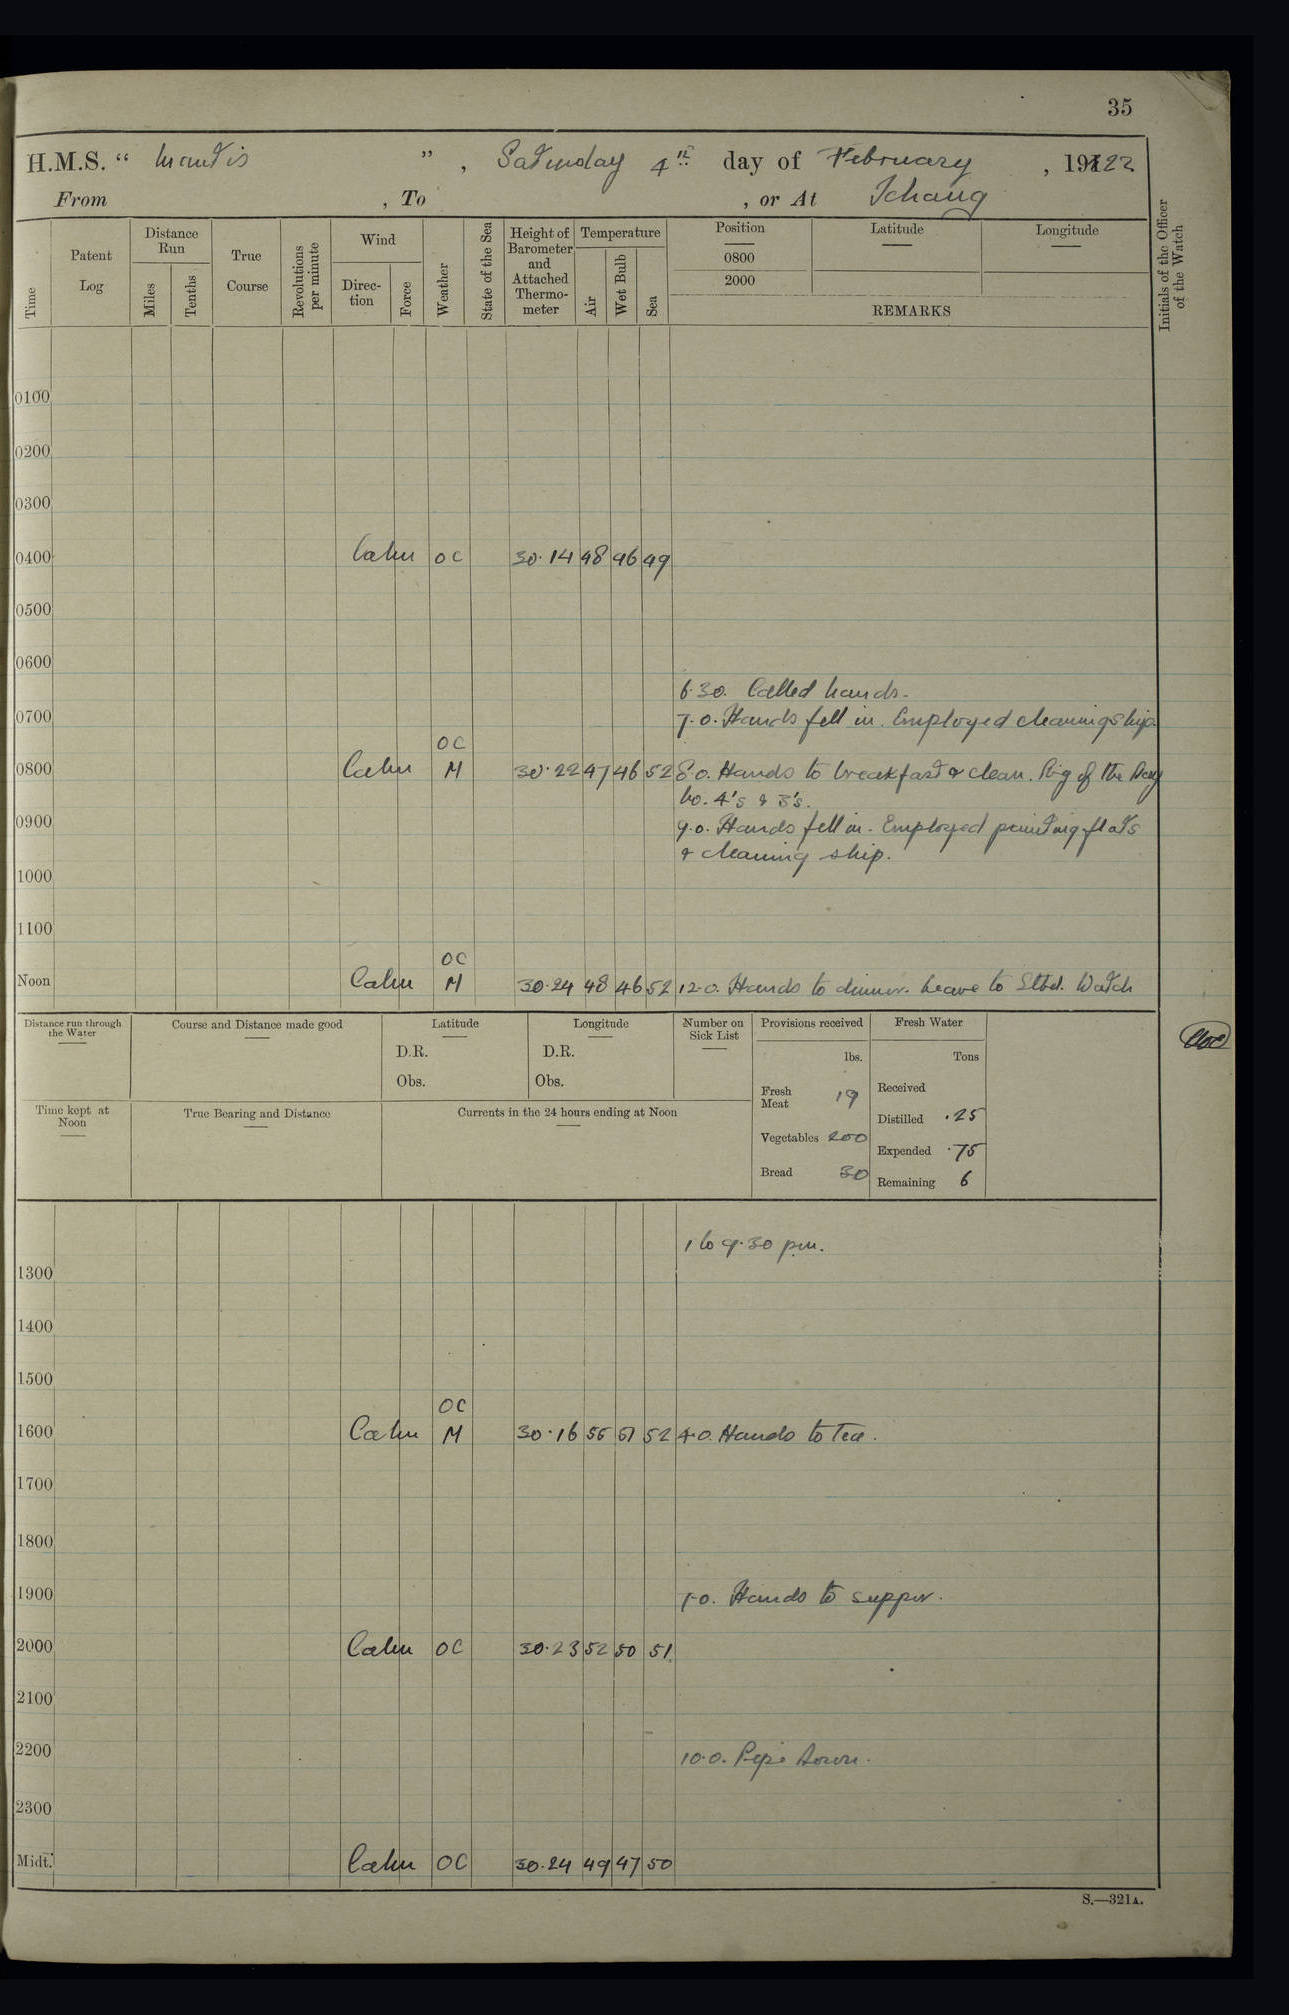 35
H.M.S. “ Mantis ” , Saturday 4th day of February , 191 1922
From , To , or At Ichang
Time
Patent Log
Distance Run
Miles
Tenths
True Course
Revolutions per minute
Wind
Direction
Force
Weather
State of the Sea
Height of Barometer and Attached Thermometer
Temperature
Air
Wet Bulb
Sea
Position
0800
2000
Latitude
Longitude
REMARKS
Initials of the Officer of the Watch
0100
0200
0300
0400 Calm OC 30.14 48 46 49
0500
0600
6.30. Called hands.
0700 7.0. Hands fell in. Employed cleaning ship
OC
0800 Calm M 30.22 47 46 52 8.0. Hands to breakfast & clean. Rig of the Day
No. 4's & 3's.
0900 9.0. Hands fell in. Employed painting flats
& cleaning ship.
1000
1100
OC
Noon Calm M 30.24 48 46 52 12.0. Hands to dinner. Leave to Stbd. Watch
Distance run through the Water
Course and Distance made good
Latitude
D.R.
Obs.
Longitude
D.R.
Obs.
Number on Sick List
Provisions received
lbs.
Fresh Meat 19
Vegetables 200
Bread 30
Fresh Water
Tons
Received
Distilled .25
Expended .75
Remaining 6
Time kept at Noon
True Bearing and Distance
Currents in the 24 hours ending at Noon
1 to 9.30 pm.
1300
1400
1500
OC
1600 Calm M 30.16 55 51 52 4.0. Hands to Tea.
1700
1800
1900 7.0. Hands to supper.
2000 Calm OC 30.23 52 50 51
2100
2200 10.0. Pipe Down.
2300
Midt. Calm OC 30.24 49 47 50
S.—321A.